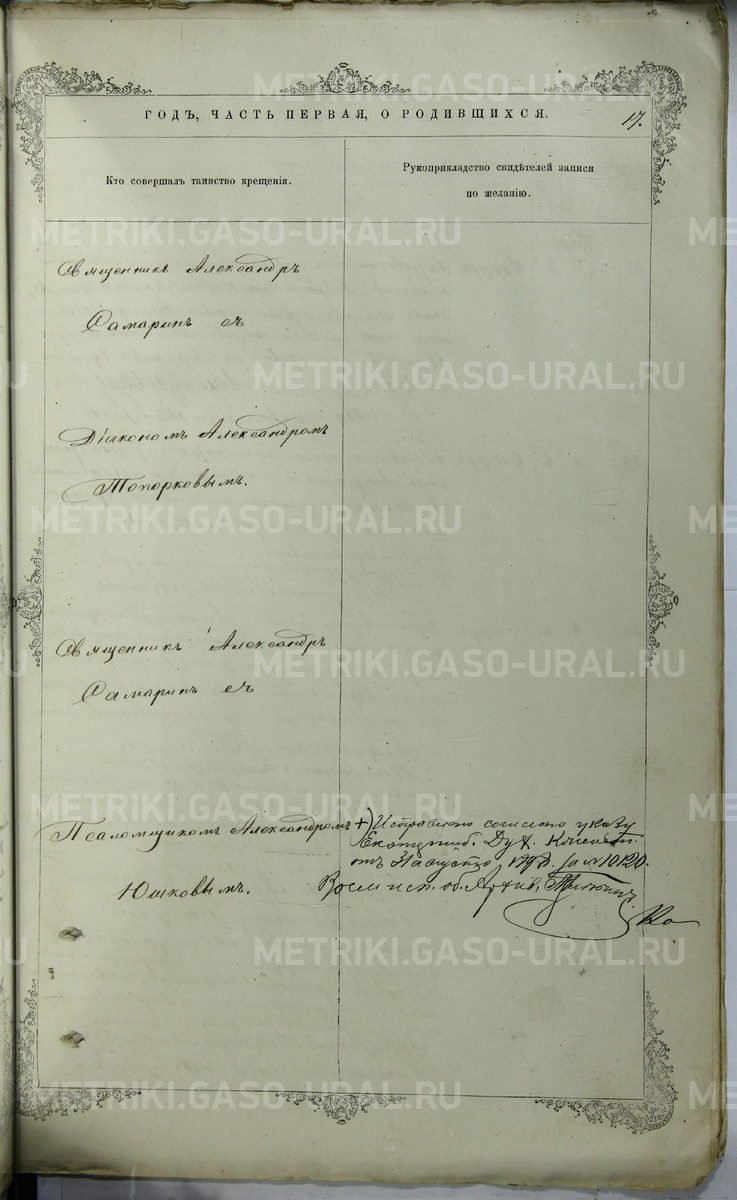 ГОДЪ, ЧАСТЬ ПЕРВАЯ, О РОДИВШИХСЯ.
17.
Кто совершалъ таинство крещенія.
Рукоприкладство свидѣтелей записи
по желанію.
Священникъ Александръ
Самаринъ съ
Діакономъ Александромъ
Топорковымъ.
Священникъ Александръ
Самаринъ съ
Псаломщикомъ Александромъ
Юшковымъ.
+) Исправлено согласно указу
Екатеринб. Дух. Консист.
отъ 31 августа за № 10120.
об. Архив.
METRIKI.GASO-URAL.RU